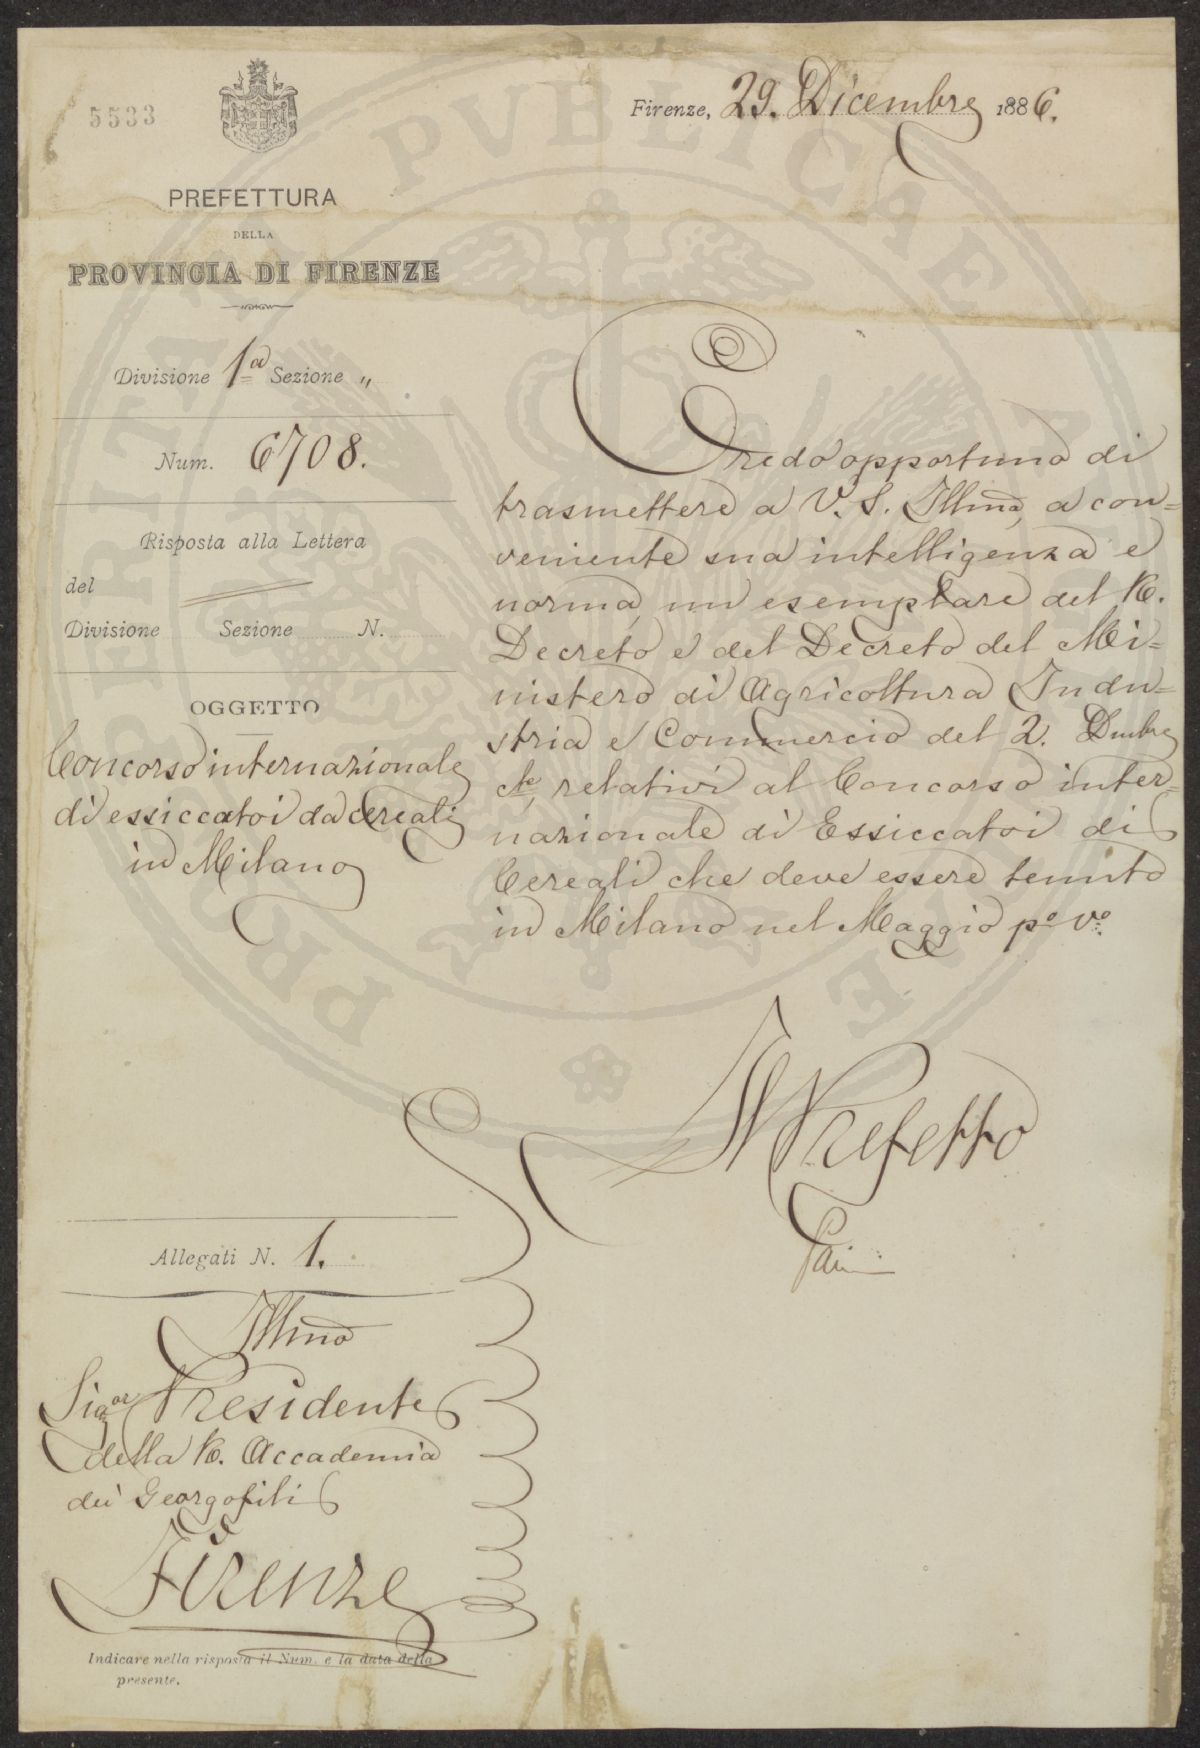 5533
Firenze, 29. Dicembre 1886.
PREFETTURA
DELLA
PROVINCIA DI FIRENZE
Divisione 1ª Sezione "
Num. 6708.
Risposta alla Lettera
del
Divisione Sezione N.
OGGETTO
Concorso internazionale
di essiccatoi da cereali
in Milano
Credo opportuno di
trasmettere a V. S. Illma, a con=
veniente sua intelligenza e
norma, un esemplare del R.
Decreto e del Decreto del Mi=
nistero di Agricoltura Indu=
stria e Commercio del 2. Dmbre
cte, relativi al Concorso inter=
nazionale di Essiccatoi di
Cereali che deve essere tenuto
in Milano nel Maggio po vo.
Il Prefetto
Allegati N. 1.
Illmo
Sigor Presidente
della R. Accademia
dei Georgofili
Firenze
Indicare nella risposta il Num. e la data della
presente.
PRVBLICAE
PROSPERITATI